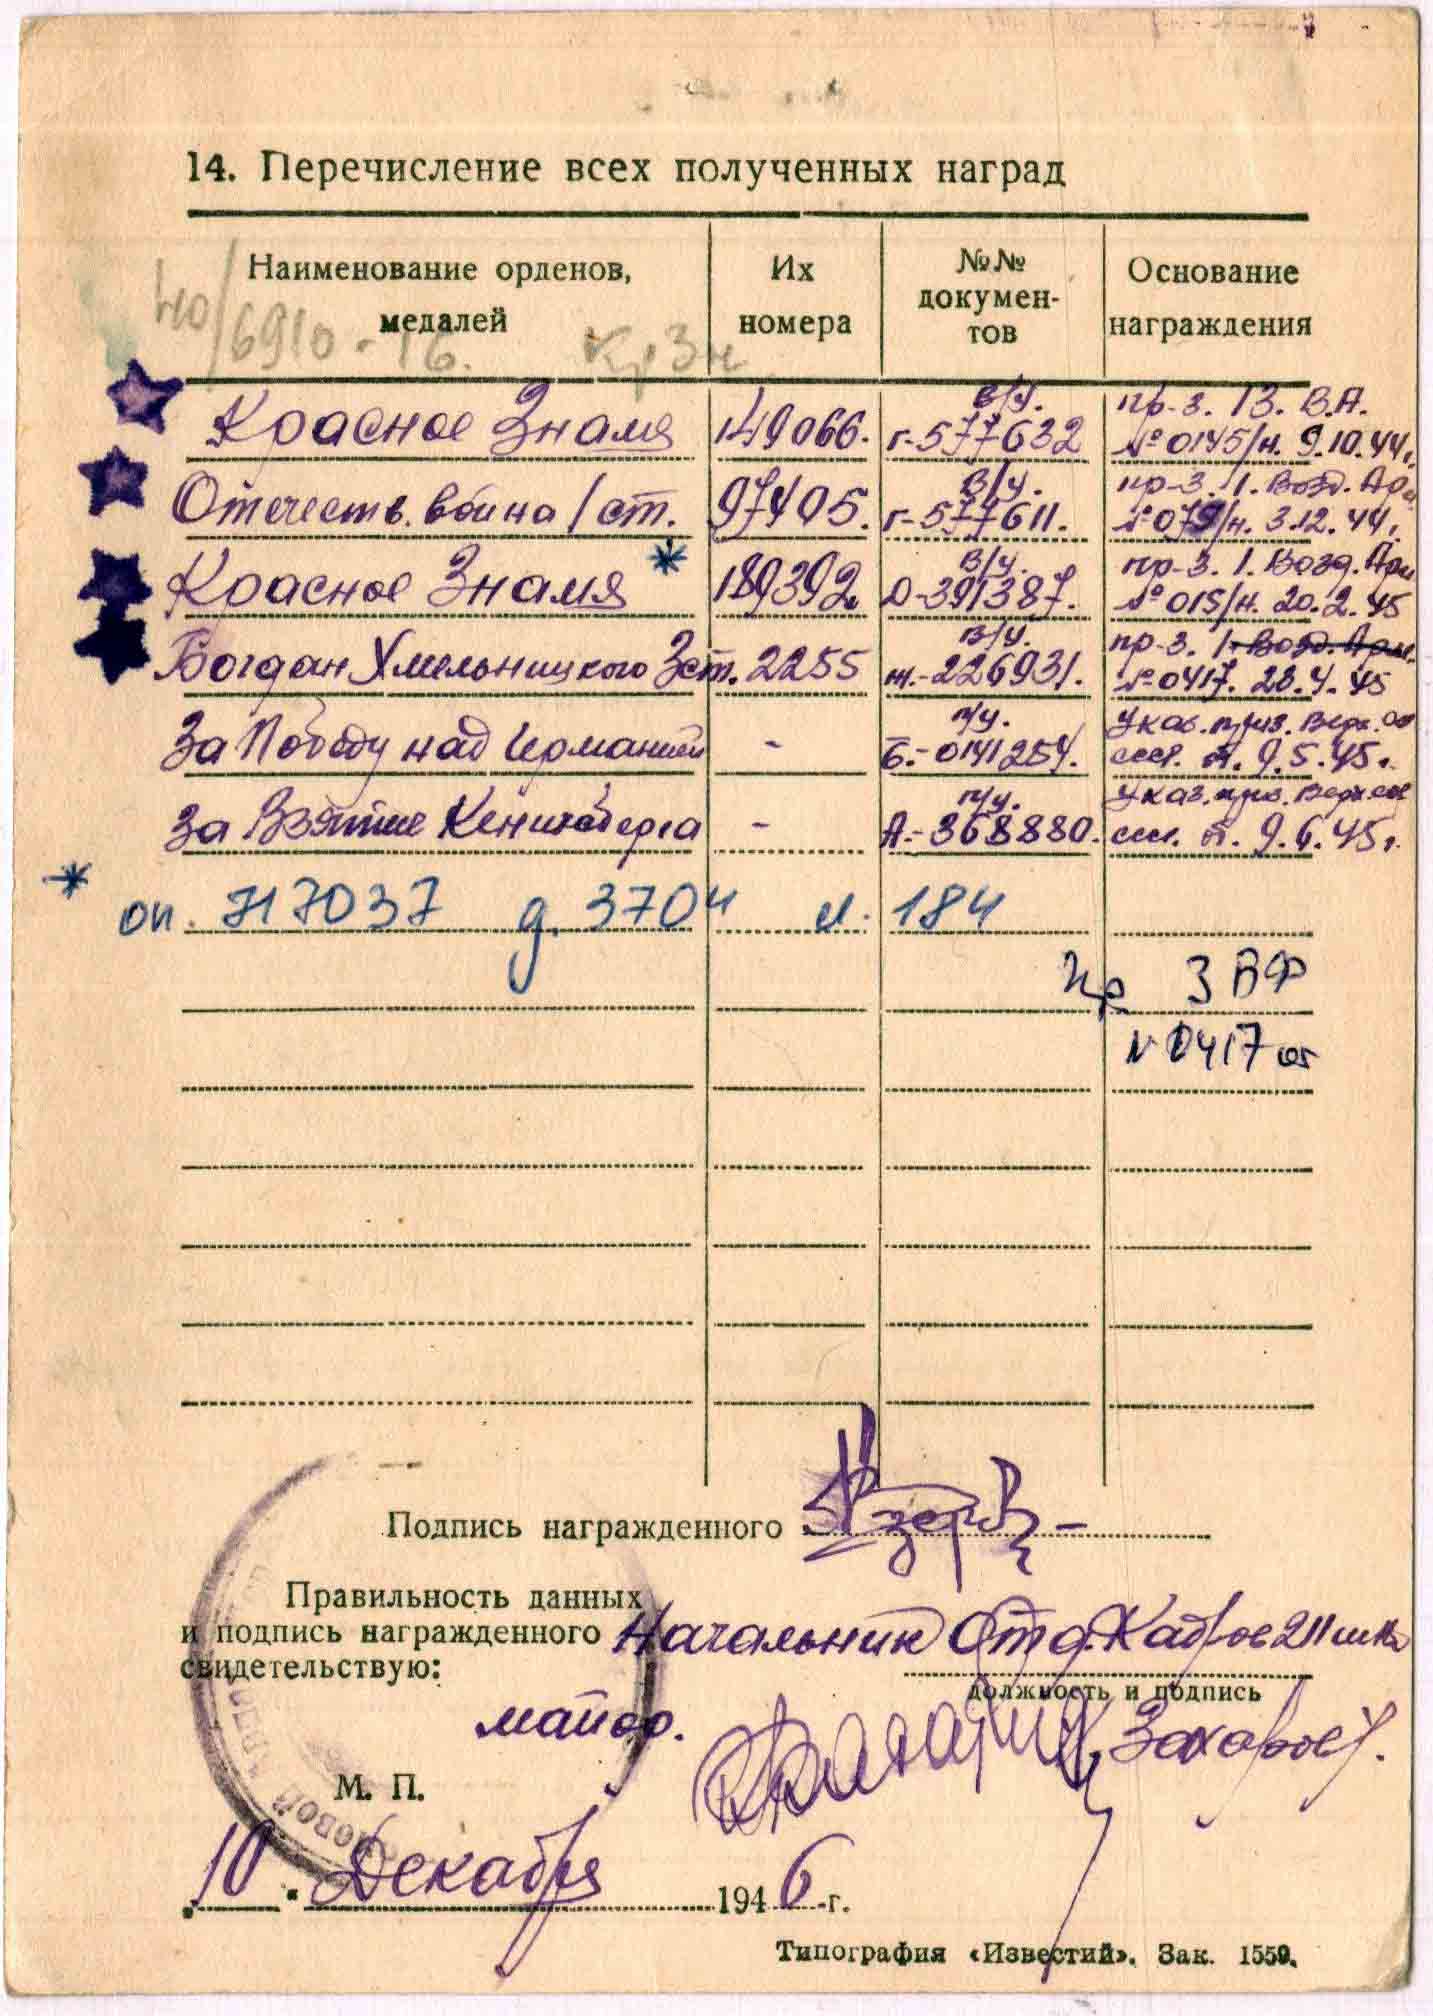 14. Перечисление всех полученных наград
Наименование орденов, медалей
Их номера
№№ документов
Основание награждения
40/6910-16. Кр Зн
Красное Знамя 149066. в/ч. г-577632 пр-з. 13. В.А. № 0145/н. 9.10.44г.
Отечеств. война 1 ст. 97405. в/ч. г-577611. пр-з. 1. Возд. Арм № 079/н. 3.12.44г.
Красное Знамя * 189392. в/ч. Д-391387. пр-з. 1. Возд. Арм № 015/н. 20.2.45
Богдан Хмельницкого 3 ст. 2255 в/ч. ж.-226931. пр-з. 1 Возд. Арм. № 0417. 28.4.45
За Победу над Германией - п/у. Б.-0141254. Указ. през. Верх. сов ссср. от. 9.5.45г.
За Взятие Кенигсберга - п/у. А.-368880. Указ. през. Верх сов ссср. от. 9.6.45г.
* оп. 717037 д. 3704 л. 184
Пр 3 ВФ
N 0417 от
Подпись награжденного
Правильность данных
и подпись награжденного Начальник Отд. Кадров 211
свидетельствую:
должность и подпись
майор. Захаров.
М. П.
10. Декабря 1946 г.
Типография «Известий». Зак. 1559.